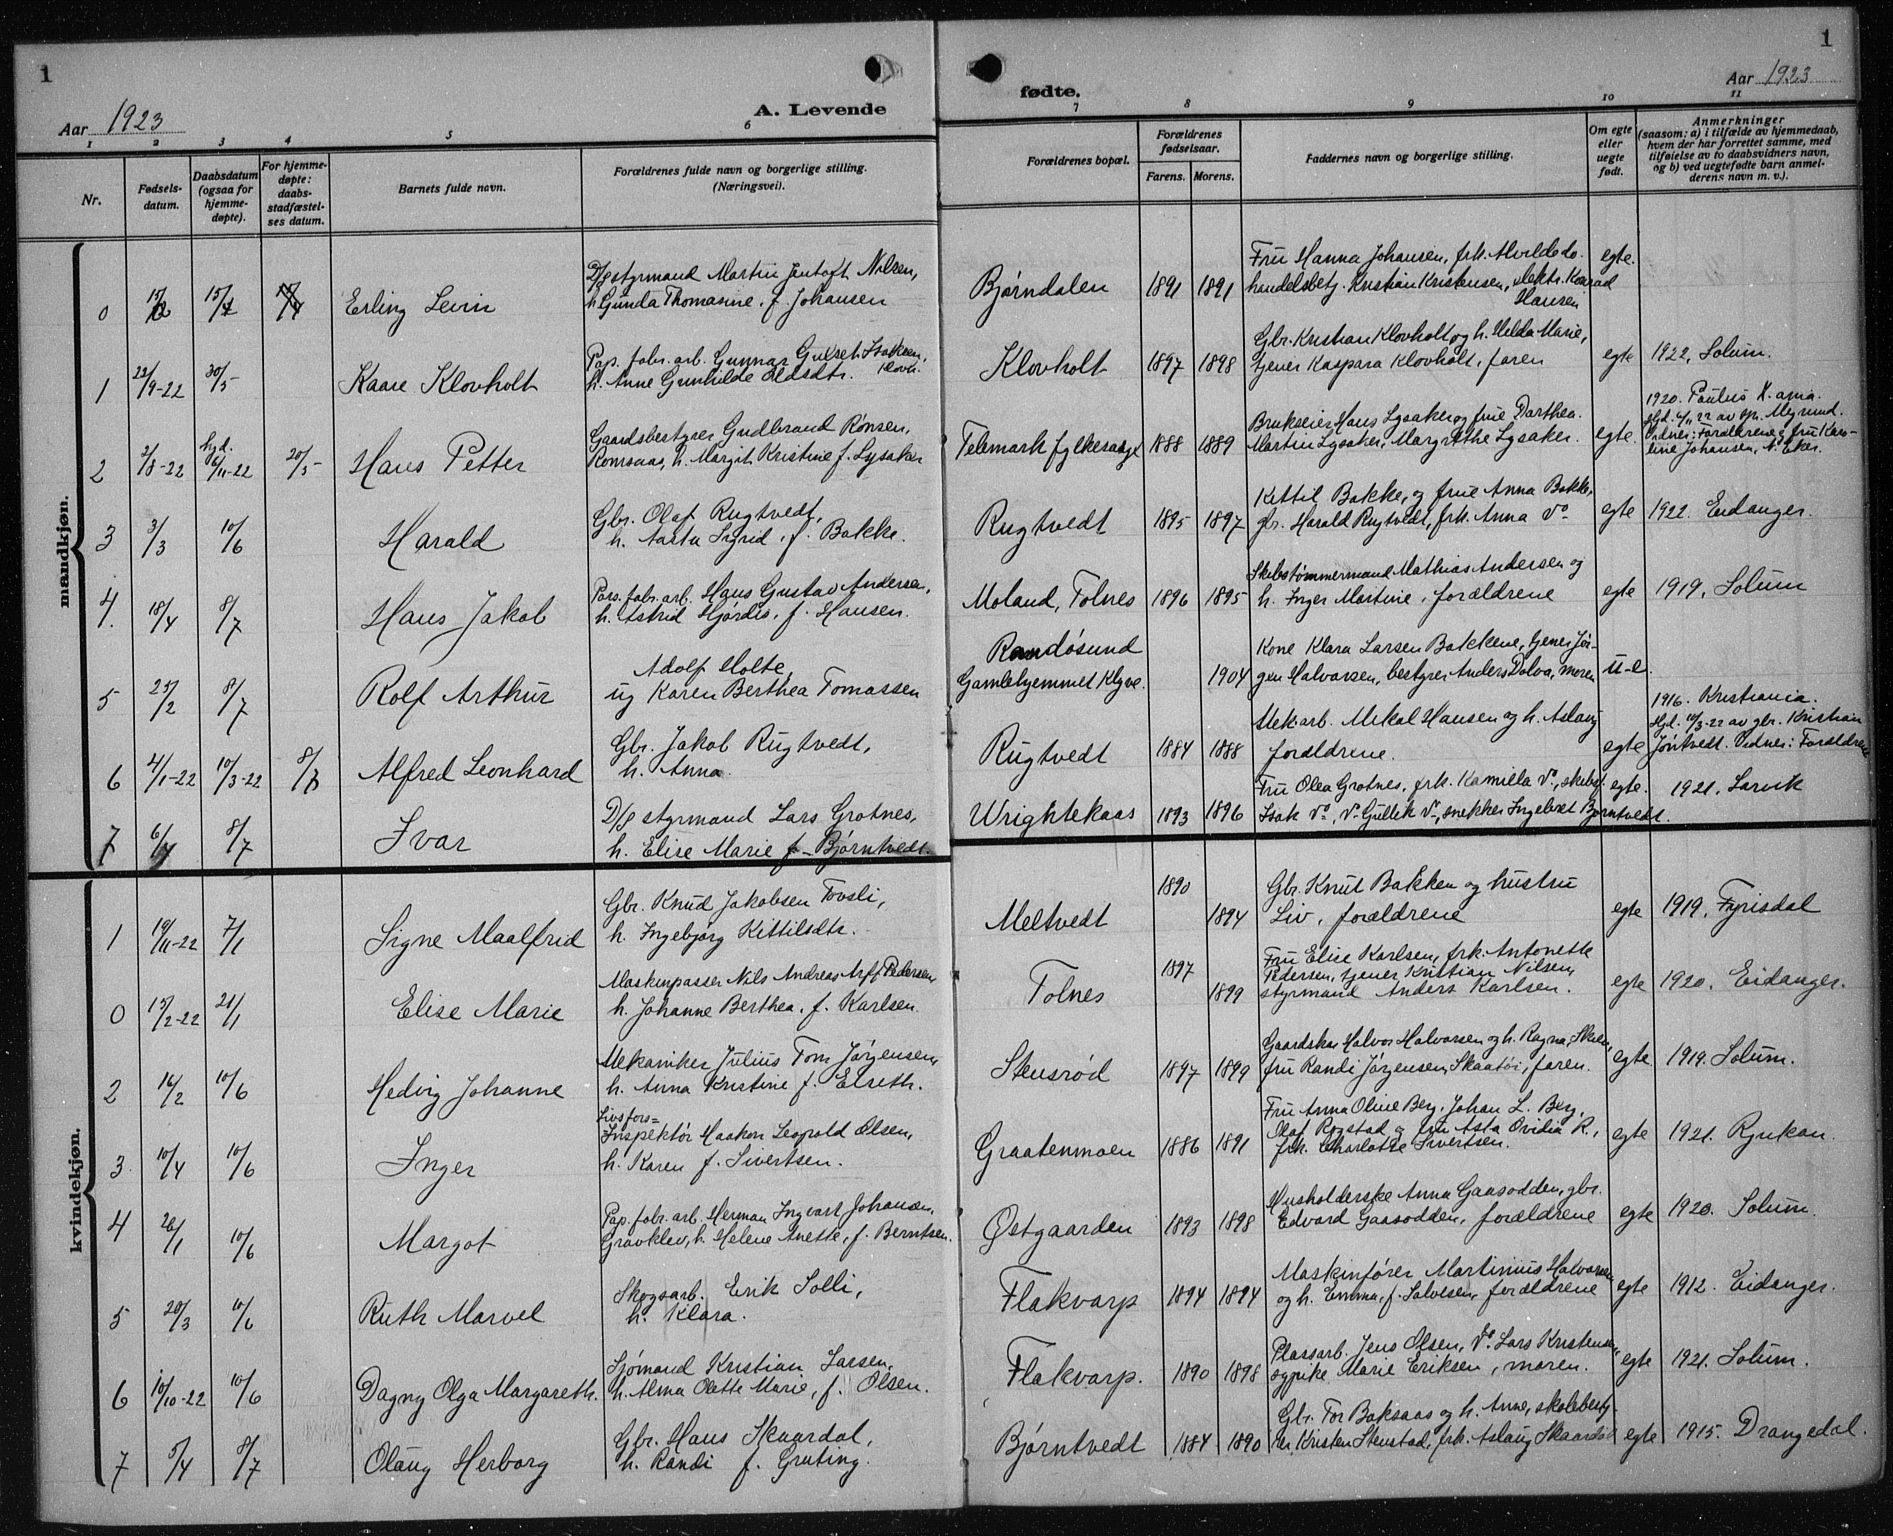 1
Aar 1923
A. Levende
1 2 3 4 5 6
Nr.
Fødsels-
datum.
Daabsdatum
(ogsaa for
hjemme-
døpte).
For hjemme-
døpte:
daabs-
stadfæstel-
ses datum.
Barnets fulde navn.
Forældrenes fulde navn og borgerlige stilling.
(Næringsvei).
mandkjøn.
0
Erling Levin
D/s styrmand Martin Jentoft Nilsen,
h. Gunda Thomasine, f. Johansen
1 22/9-22 30/5 Kaare Klovholt
Pap. fabr. arb. Gunnar Gulseth Isaksen, Klovh.
h. Anne Gunhilde Oldsdtr.
2 2/8-22 hjd. 6/11-22 20/5 Hans Petter
Gaardsbestyrer Gudbrand Rønsen,
Romsaas, h. Margit Kristine f. Lysaker
3 3/3 10/6 Harald
Gbr. Olaf Rugtvedt,
h. Aasta Sigrid, f. Bakke.
4. 18/4 8/7 Hans Jakob
Pap. fabr. arb. Hans Gustav Andersen,
h. Astrid Hjørdis, f. Hansen.
5 25/2 8/7 Rolf Arthur
Adolf Holte,
ug Karen Berthea Tomassen
6 4/1-22 10/3-22 8/7 Alfred Leonhard
Gbr. Jakob Rugtvedt,
h. Anna.
7 8/7 Ivar
D/s styrmand Lars Grotnes,
h. Elise Marie f. Bjørntvedt.
kvindekjøn.
1 19/11-22 7/1 Signe Maalfrid
Gbr. Knud Jakobsen Tovsli,
h. Ingebjørg Kittilsdtr.
0 15/2-22 21/1 Elise Marie
Maskinpasser Nils Andreas Arff Pedersen,
h. Johanne Berthea, f. Karlsen.
2 16/2 10/6 Hedvig Johanne
Mekaniker Julius Tom Jørgensen,
h. Anna Kristine f. Elseth.
3 10/4 10/6 Inger
Livsfors=
Inspektør Haakon Leopold Olsen,
h. Karen f. Sivertsen.
4 26/1 10/6 Margot
Pap. fabr. arb. Herman Ingvart Johansen,
Gravklev, h. Helene Anette, f. Berntsen.
5 20/3 10/6 Ruth Marvel
Skogsarb. Erik Solli,
h. Klara.
6 10/10-22 10/6 Dagny Olga Margareth.
Sjømand Kristian Larsen,
h. Alma Olette Marie, f. Olsen.
7 5/4 8/7 Olaug Herborg
Gbr. Hans Skaardal,
h. Randi f. Gruting.
1
Aar 1923
fødte.
7 8 9 10 11
Forældrenes bopæl.
Forældrenes
fødselsaar.
Farens. Morens.
Faddernes navn og borgerlige stilling.
Om egte
eller
uegte
født.
Anmerkninger
(saasom: a) i tilfælde av hjemmedaab,
hvem der har forrettet samme, med
tilføielse av to daabsvidners navn,
og b) ved uegtefødte barn anmel-
derens navn m. v.).
Bjørndalen 1891 1891
Fru Hanna Johansen, frk. Alvilde do.
handelsbetj. Kristian Kristensen, elektr. Konrad
Hansen
egte.
Klovholt 1897 1898
Gbr. Kristian Klovholt og h. Helda Marie,
tjener Kaspara Klovholt, faren
egte 1922, Solum.
Telemark fylkesaage 1888 1889
Brukseier Hans Lysaker og frue Darthea.
Martin Lysaker, Margrethe Lysaker.
egte.
1920. Paulus K. ania.
Vidner: Forældrene, fru Karo-
line Johansen, N. Eker.
Rugtvedt 1895 1897
Kittil Bakke, og frue Anna Bakke,
gbr. Harald Rugtvedt, frk. Anna Do
egte 1922. Eidanger.
Moland, Tolnes 1896 1895
Skibstømmermand Mathias Andersen og
h. Inger Martine, forældrene
egte 1919, Solum
Randøsund
Gamlehjemmet Klyve. 1904
Kone Klara Larsen Bakkene, tjener Jør-
gen Halvorsen, bestyrer Anders Dalva, moren
u-e.
Rugtvedt 1884 1888
Mek. arb. Mekal Hansen og h. Aslaug
forældrene.
egte
1916. Kristiania.
Hjd. 10/3-22 av gbr. Kristian
Jøntvedt. Vidner: Forældrene
Wrightekaas 1893 1896
Fru Olea Grotnes, frk. Kamilla Do, skibsf.
Isak Do, Do Gullik Do, snekker Ingebret Bjørntvedt.
egte. 1921. Larvik
Meltvedt 1890 1894
Gbr. Knut Bakken og hustru
Liv, forældrene
egte 1919, Fyrisdal
Tolnes 1897 1899
Fru Elise Karlsen, frk. Antonette
Pedersen, tjener Kristian Nilsen,
styrmand Anders Karlsen.
egte 1920. Eidanger.
Stensrød 1897 1899
Gaardsker Halvor Halvorsen og h. Ragna, Skien,
fru Randi Jørgensen, Skaatøi, faren.
egte 1919. Solum.
Graatenmoen 1886 1891
Fru Anna Oline Berg, Johan L. Berg,
Olaf Rogstad og fru Asta Ovidia R.,
frk. Charlotte Sivertsen.
egte 1921. Rjukan.
Østgaarden 1893 1898
Husholderske Anna Gaasodden, gbr.
Edvard Gaasodden, forældrene
egte 1920. Solum.
Flakvarp 1894 1894
Maskinfører Martinius Halvorsen
og h. Emma, f. Salvesen, forældrene
egte 1912. Eidanger.
Flakvarp. 1890 1898
Plassarb. Jens Olsen, Do Lars Kristensen,
sypike Marie Eriksen, moren.
egte 1921. Solum.
Bjørntvedt 1884 1890
Gbr. Tor Baksaas og h. Anne, skolebesty-
rer Kristen Stenstad, frk. Aslaug Skaardal
egte 1915. Drangedal.